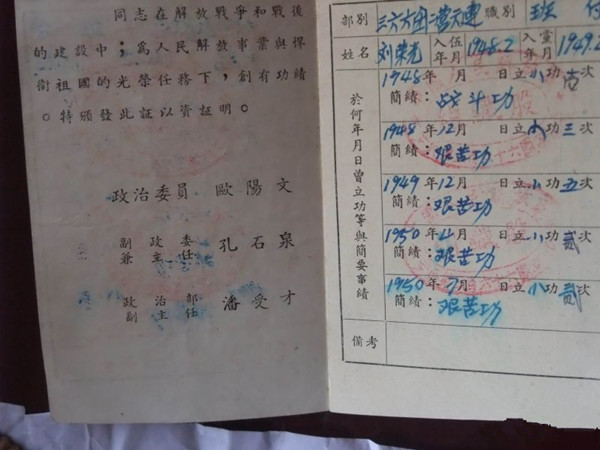 同志在解放戰爭和戰後
的建設中；為人民解放事業與捍
衛祖國的光榮任務下，創有功績
。特頒發此証以資証明。
政治委員 歐陽文
副政委
兼主任 孔石泉
政治部
副主任 潘受才
部別 三六六团二营六連 職別 班
姓名 刘荣光 入伍年月 1948.2 入黨年月 1949.2
於何年月日曾立功等與簡要事績
1948年 月 日立小功 次
簡績：战斗功
1948年12月 日立小功三次
簡績：艰苦功
1949年12月 日立小功五次
簡績：艰苦功
1950年4月 日立小功贰次
簡績：艰苦功
1950年7月 日立小功贰次
簡績：艰苦功
備考